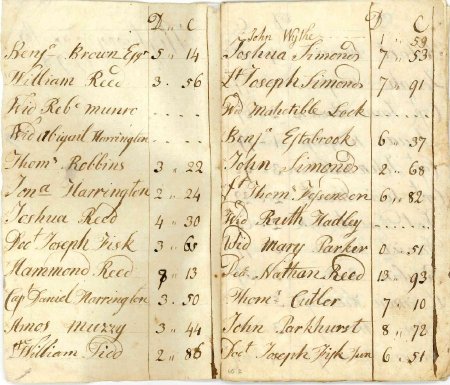 D " C
Benjᵃ Brown Esqr 5 " 14
William Reed 3 . 56
Wid Rebᶜ munro . . . .
Wid abigail Harrington . . . .
Thomˢ Robbins 3 " 22
Jonᵃ Harrington 2 " 24
Joshua Reed 4 " 30
Docᵗ Joseph Fisk 3 "
Hammond Reed 8 " 13
Capᵗ Daniel Harrington 3 . 50
Amos Muzzy 3 " 44
William Tidd 2 " 86
D C
John Wythe 1 " 59
Joshua Simonds 7 " 53
Lᵗ Joseph Simonds 7 " 91
Wid Lock . . . .
Benjᵃ Estabrook 6 " 37
John Simonds 2 " 68
Thomˢ Fessenden 6 " 82
Wid Ruth Hadley . . . .
Wid Mary Parker 0 . 51
Nathan Reed 13 " 93
Thomˢ Cutler 7 " 10
John Parkhurst 8 " 72
Docᵗ Joseph Fisk Jun 6 " 51